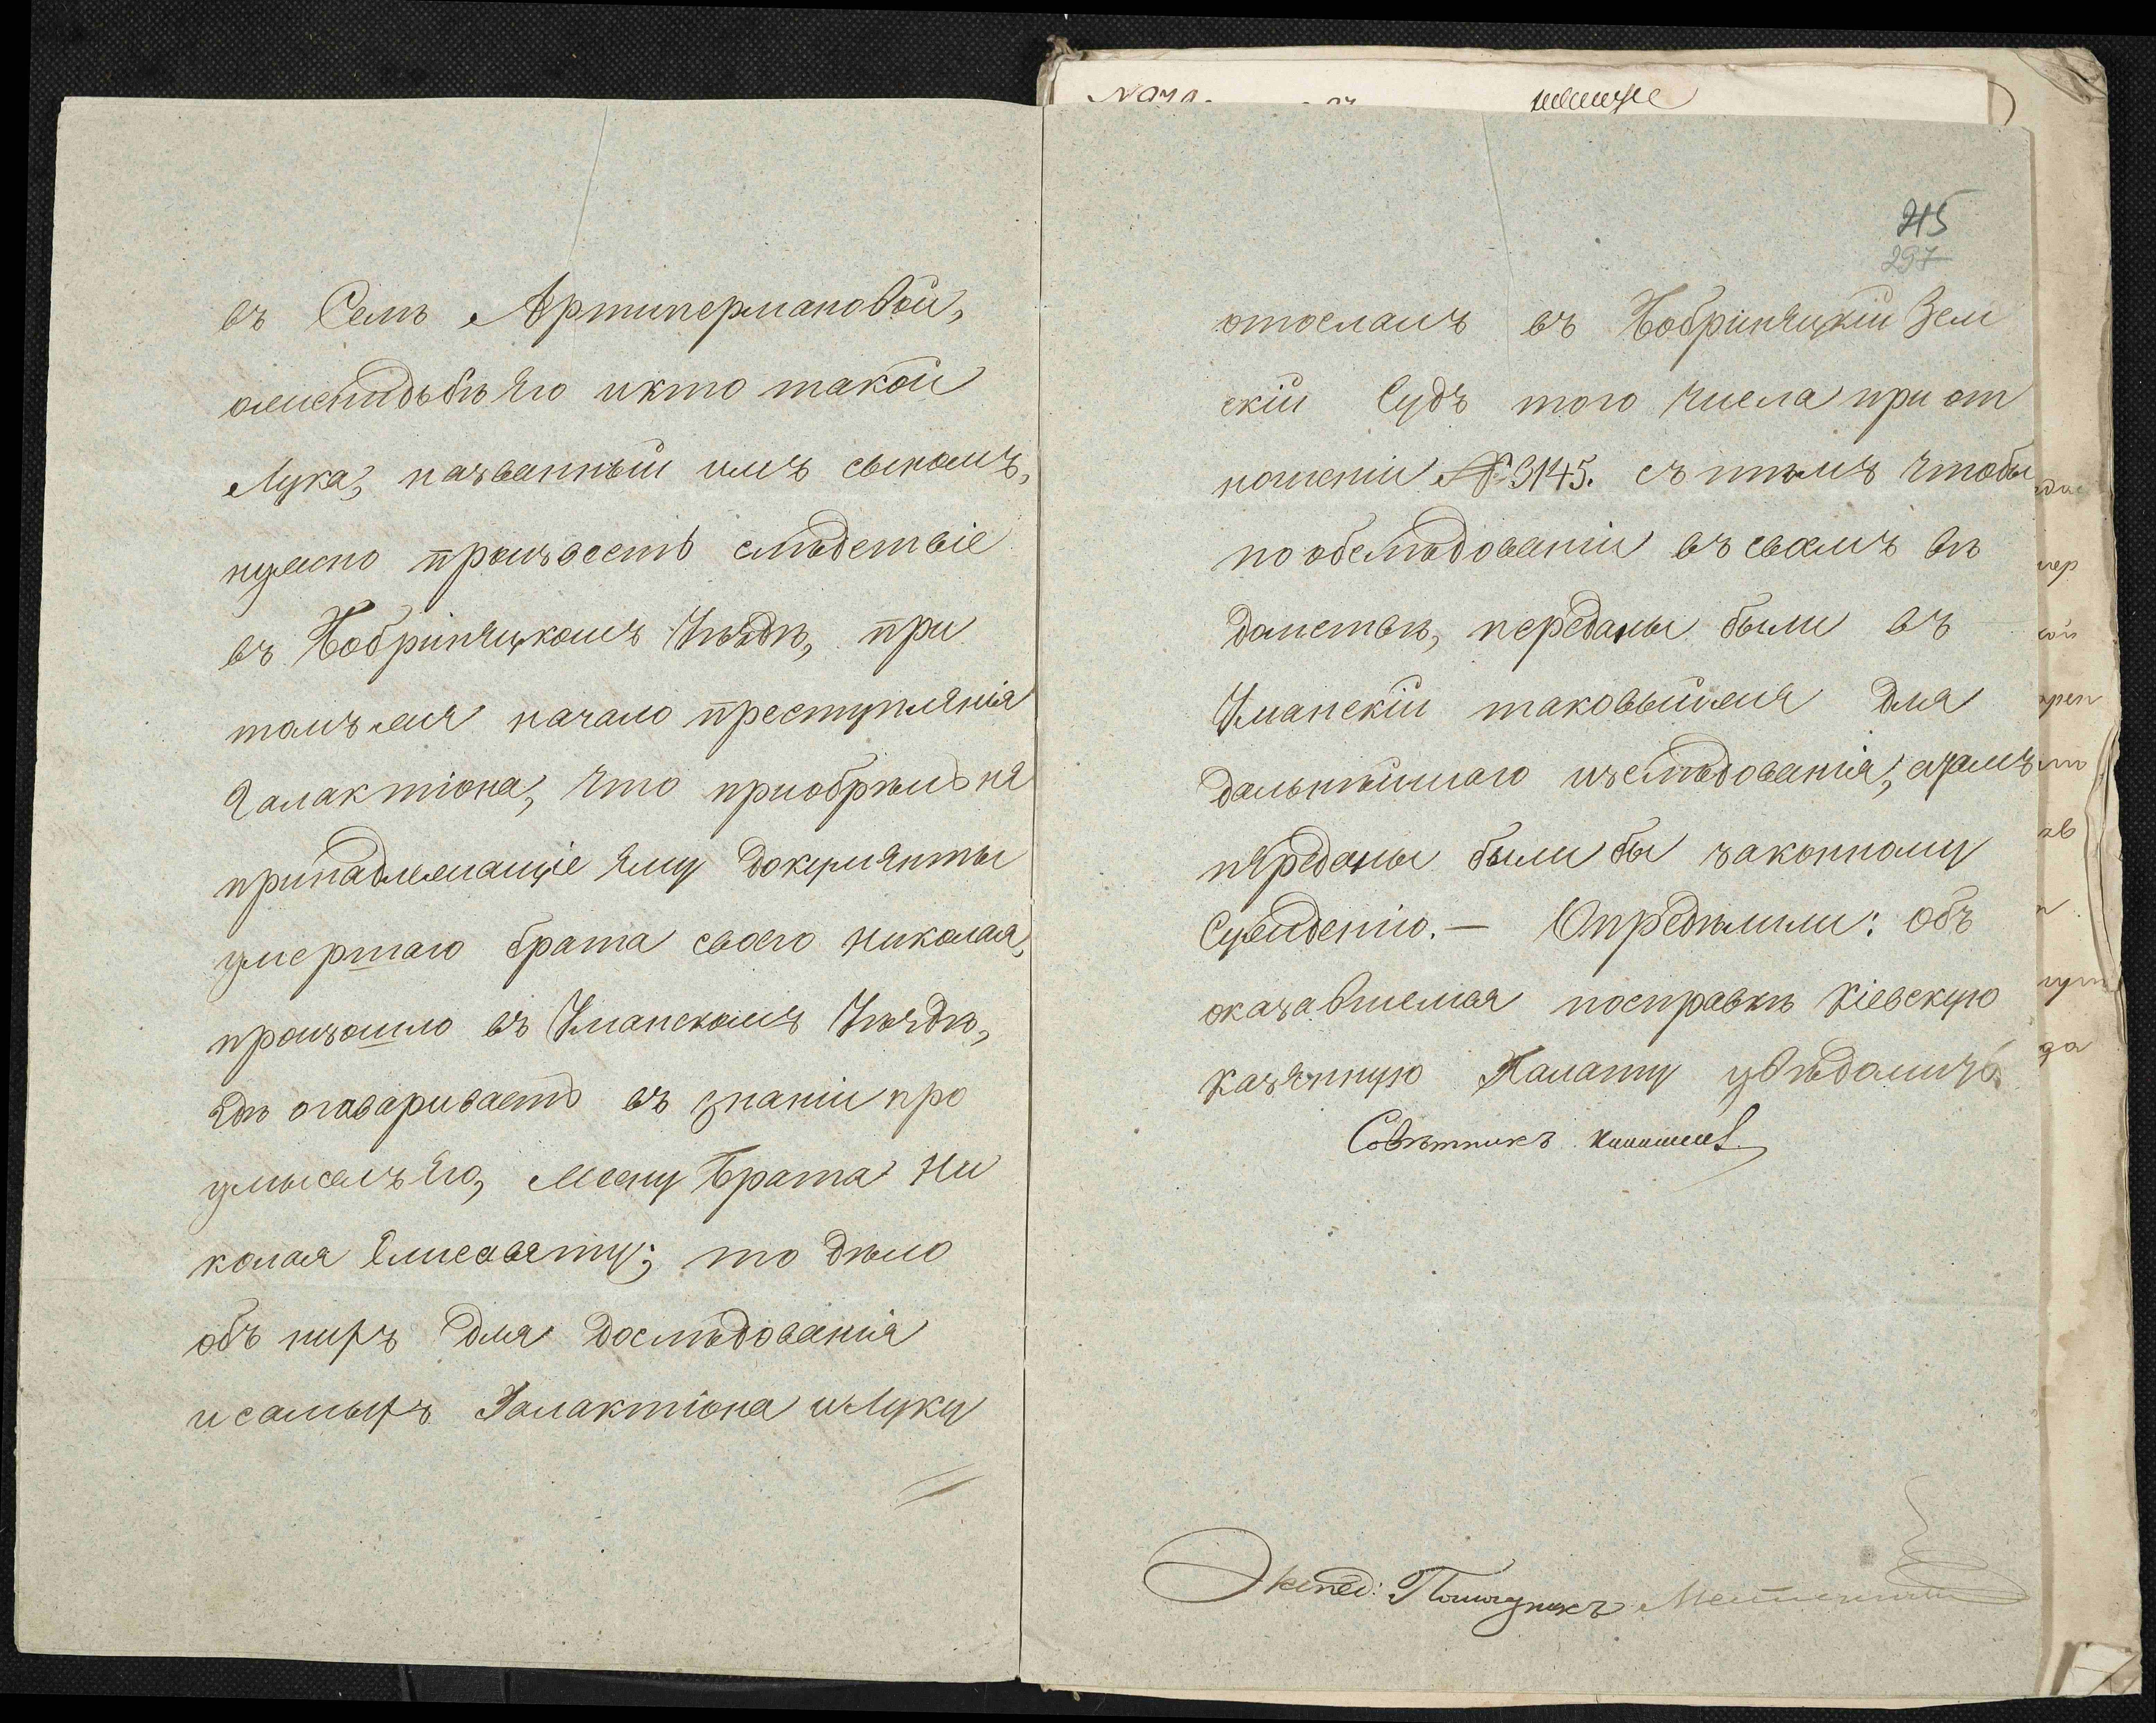 въ Селѣ Артиперманово́й,
ожепидьбѣ Его икто такой
Лука, названный имъ сыномъ,
нужно произвесть слѣдствіе
въ Бобринецкомъ Уѣздѣ, при
томъ жея начало преступленія
Галактіона, что приобрѣлъ не
принадлежащіе ему документы
умершаго брата своего Николая,
произошло въ Уманскомъ Уѣздѣ,
гдѣ огавариваетъ въ знаніи про
умыселъ Его, жену Брата Ни
колая Елисавету; то дѣло
объ нихъ для дослѣдованія
исамыхъ Галактіона иЛуку
215
297
отосланъ въ Бобринецкій Зем
скій Судъ того числа при от
ношеніи № 3145. съ тѣмъ чтобы
пообслѣдованіи въ своемъ вѣ
домствѣ, переданы были въ
Уманскій таковыйжея для
дальнѣйшаго изслѣдованія, атамъ
переданы были бы законному
Сужденію.— Опредѣлили: объ
оказавшемся посправкѣ Кіевскую
Казенную Палату увѣдомить.
Совѣтникъ
Экспед: Помощникъ